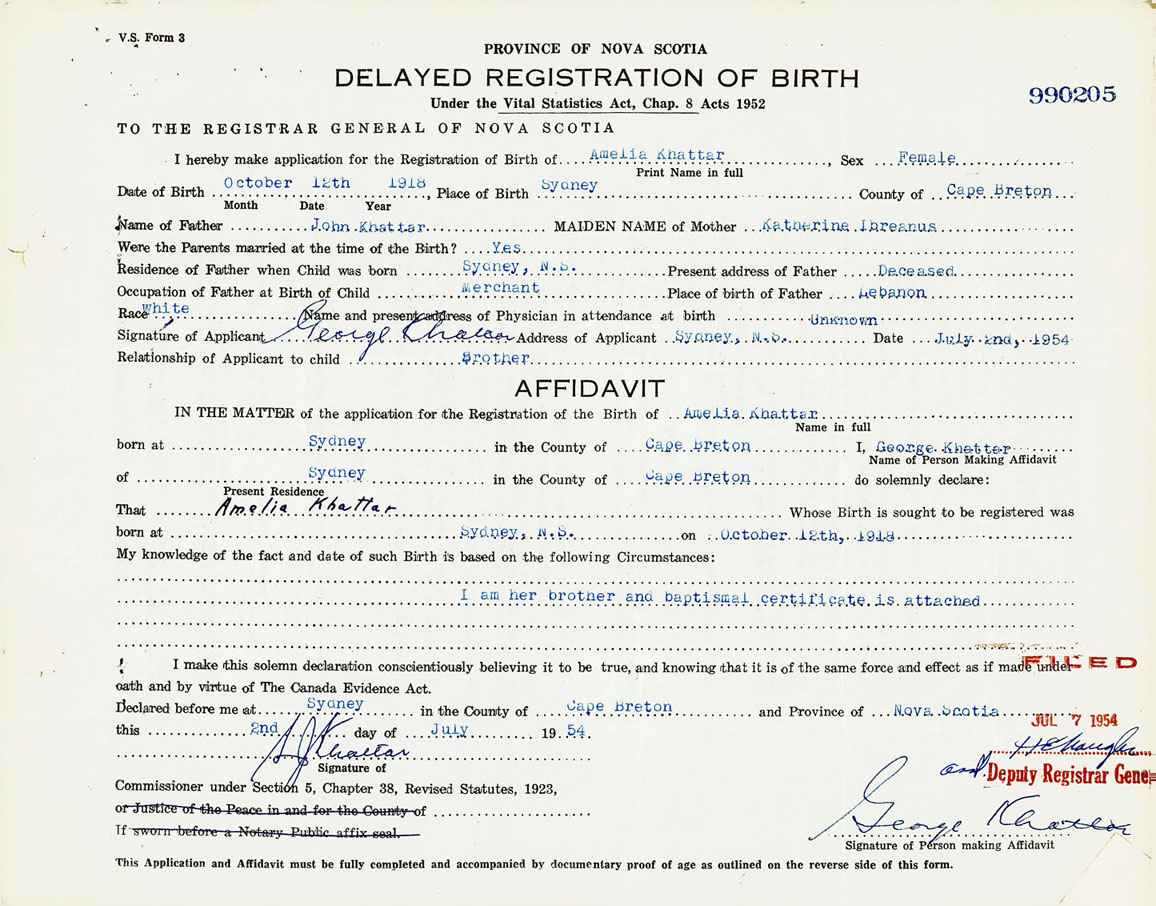 V.S. Form 3
PROVINCE OF NOVA SCOTIA
DELAYED REGISTRATION OF BIRTH
990205
Under the Vital Statistics Act, Chap. 8 Acts 1952
TO THE REGISTRAR GENERAL OF NOVA SCOTIA
I hereby make application for the Registration of Birth of Amelia Khattar, Sex Female
Print Name in full
Date of Birth October 12th 1918, Place of Birth Sydney County of Cape Breton
Month Date Year
Name of Father John Khattar MAIDEN NAME of Mother Katherine Ibreanus
Were the Parents married at the time of the Birth? Yes
Residence of Father when Child was born Sydney, N.S. Present address of Father Deceased
Occupation of Father at Birth of Child Merchant Place of birth of Father Lebanon
Race White Name and present address of Physician in attendance at birth Unknown
Signature of Applicant George Khattar Address of Applicant Sydney, N.S. Date July 2nd, 1954
Relationship of Applicant to child Brother
AFFIDAVIT
IN THE MATTER of the application for the Registration of the Birth of Amelia Khattar
Name in full
born at Sydney in the County of Cape Breton I, George Khattar
Name of Person Making Affidavit
of Sydney in the County of Cape Breton do solemnly declare:
Present Residence
That Amelia Khattar Whose Birth is sought to be registered was
born at Sydney, N.S. on October 12th, 1918
My knowledge of the fact and date of such Birth is based on the following Circumstances:
I am her brother and baptismal certificate is attached
I make this solemn declaration conscientiously believing it to be true, and knowing that it is of the same force and effect as if made under
FILED
oath and by virtue of The Canada Evidence Act.
Declared before me at Sydney in the County of Cape Breton and Province of Nova Scotia
JUL 7 1954
this 2nd day of July 19 54.
S J Khattar
Signature of
Deputy Registrar Gene
Commissioner under Section 5, Chapter 38, Revised Statutes, 1923,
or Justice of the Peace in and for the County of
If sworn before a Notary Public affix seal.
George Khattar
Signature of Person making Affidavit
This Application and Affidavit must be fully completed and accompanied by documentary proof of age as outlined on the reverse side of this form.